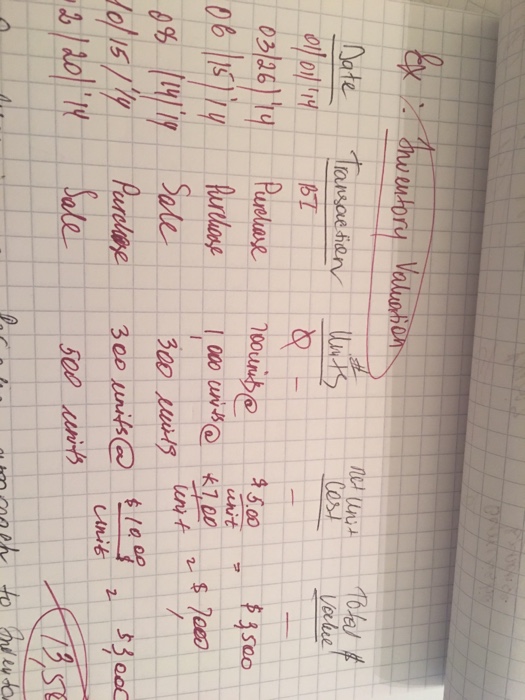 Ex: Inventory Valuation
Date Transaction # Units Net Unit Cost Total $ Value
01/01/'14 BI Ø - - -
03/26/'14 Purchase 700 units @ $5.00 unit = $3,500
06/15/'14 Purchase 1,000 units @ $7.00 unit = $7,000
08/14/'14 Sale 300 units
10/15/'14 Purchase 300 units @ $10.00 units = $3,000
2/20/'14 Sale 500 units
13,50
approach to